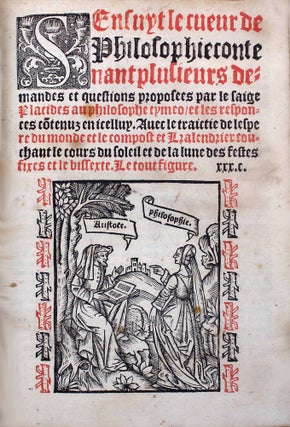 SEnsuyt le cueur de
Philosophie conte
nant plusieurs de-
mandes et questions proposees par le saige
Placides au philosophe tymeo/ et les respon-
ces cõtenuz en icelluy. Auec le traictie de lespe
re du monde et le compost et Kalendrier tou-
chant le cours du soleil et de la lune des festes
fixes et le bissexte. Le tout figure. xxx.c.
Aristote.
philosophie.